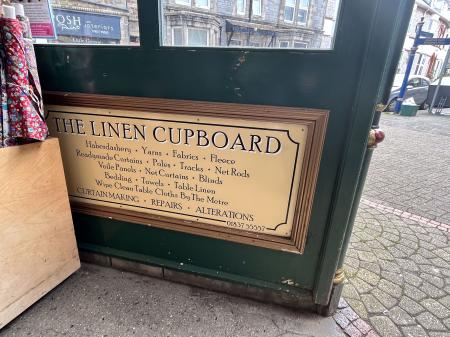 OSH
interiors
THE LINEN CUPBOARD
Haberdashery • Yarns • Fabrics • Fleece
Readymade Curtains • Poles • Tracks • Net Rods
Voile Panels • Net Curtains • Blinds
Bedding • Towels • Table Linen
Wipe Clean Table Cloths By The Metre
CURTAIN MAKING • REPAIRS • ALTERATIONS
01837 55557